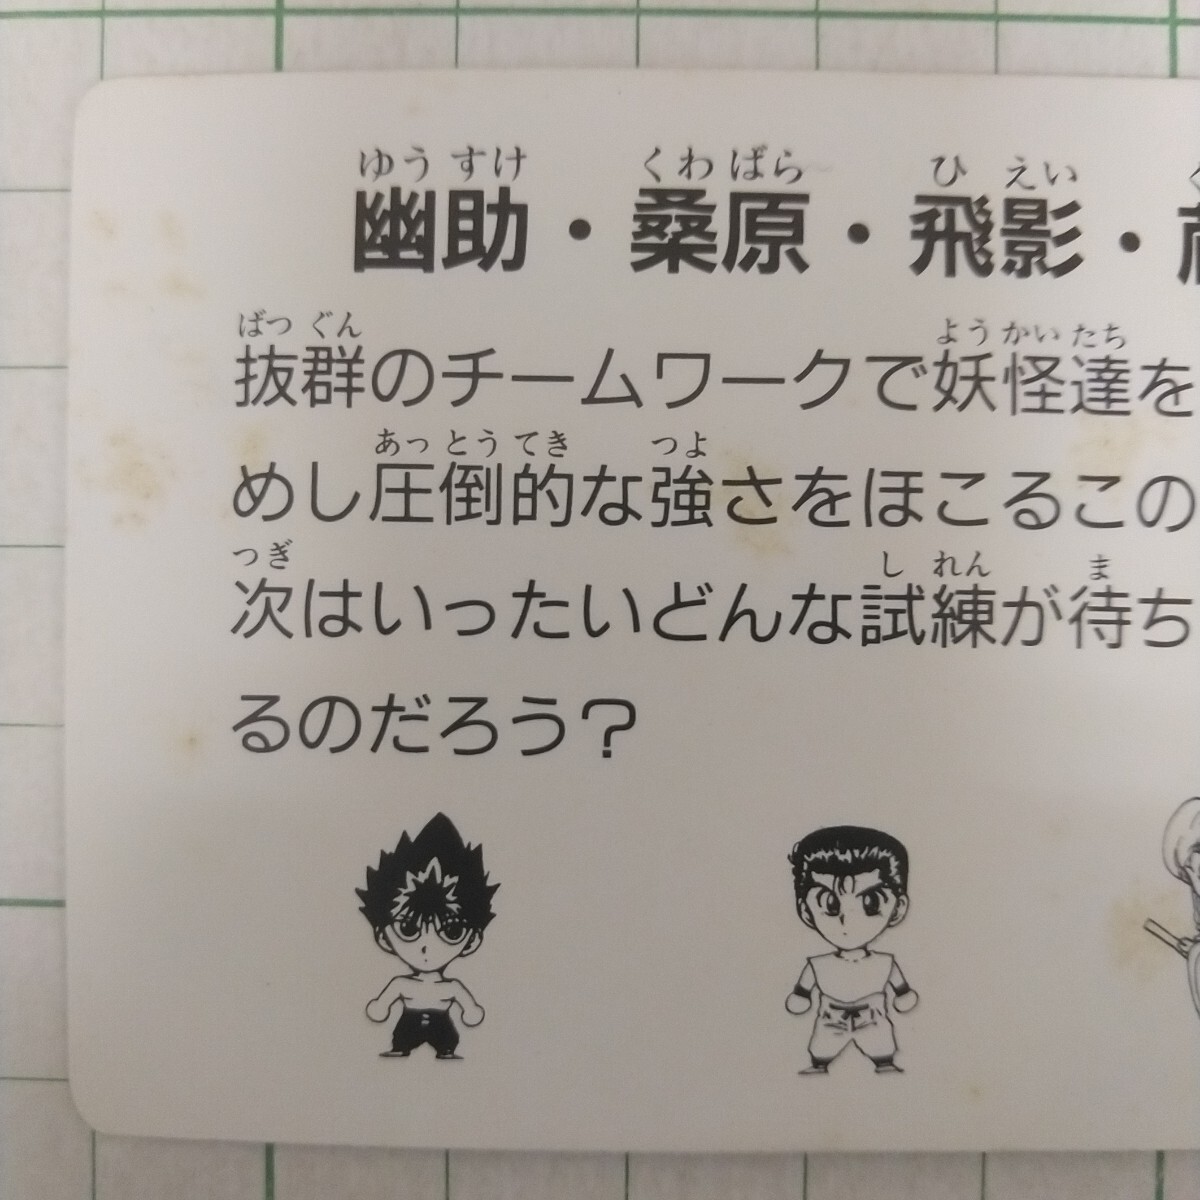 ゆう すけ くわ ばら ひ えい
幽助・桑原・飛影・
ばつ ぐん よう かい たち
抜群のチームワークで妖怪達を
あっ とう てき つよ
めし圧倒的な強さをほこるこの
つぎ し れん ま
次はいったいどんな試練が待ち
るのだろう？